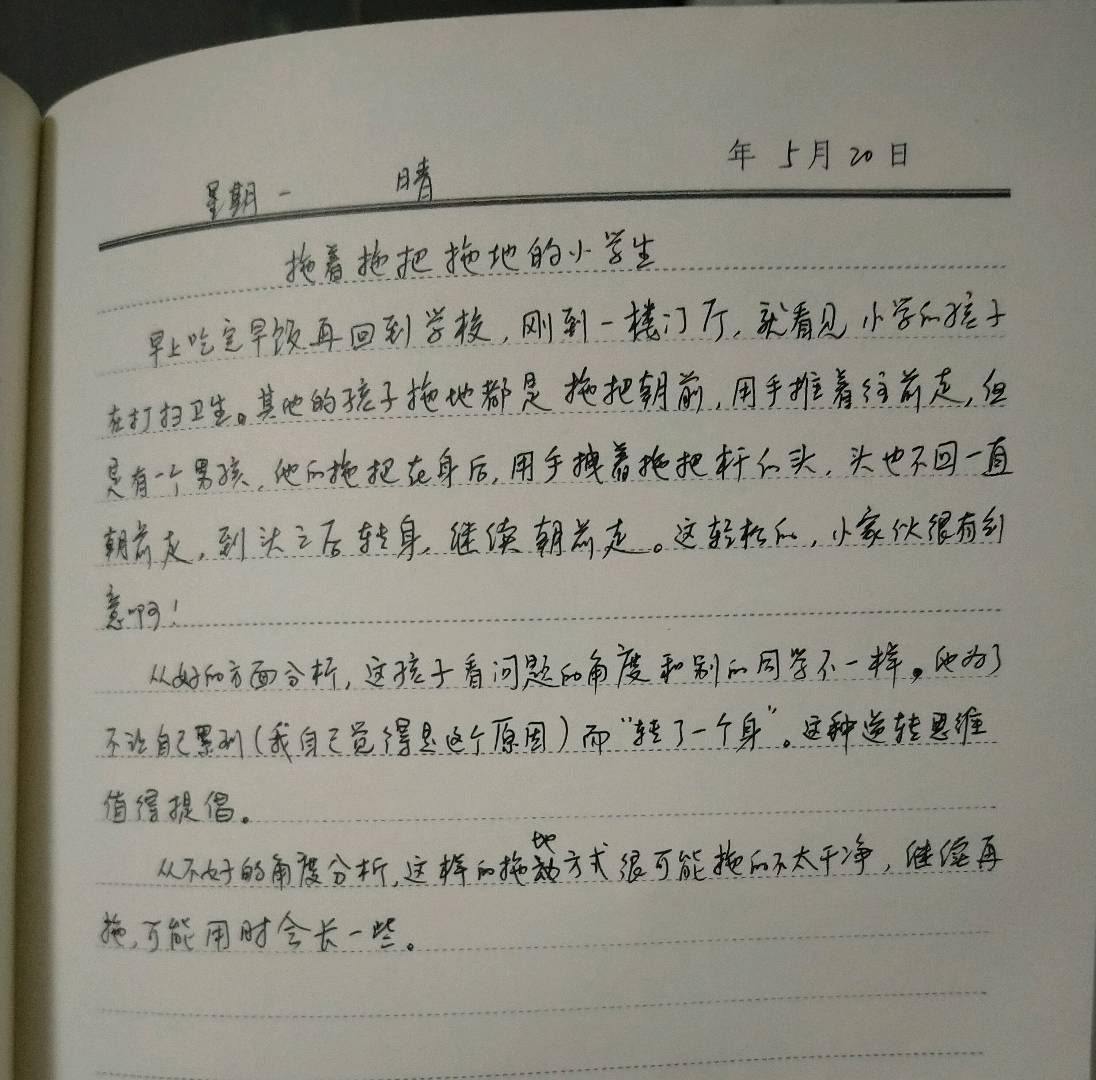 年 5月 20日
星期一 晴
拖着拖把拖地的小学生
早上吃完早饭再回到学校,刚到一楼门厅,就看见小学的孩子
在打扫卫生。其他的孩子拖地都是拖把朝前,用手推着往前走,但
是有一个男孩,他的拖把在身后,用手拽着拖把杆的头,头也不回一直
朝前走,到头之后转身,继续朝前走。这轻松的,小家伙很有创
意啊!
从好的方面分析,这孩子看问题的角度和别的同学不一样。他为了
不让自己累到(我自己觉得是这个原因)而“转了一个身”。这种逆转思维
值得提倡。
从不好的角度分析,这样的拖地方式很可能拖的不太干净,继续再
拖,可能用时会长一些。